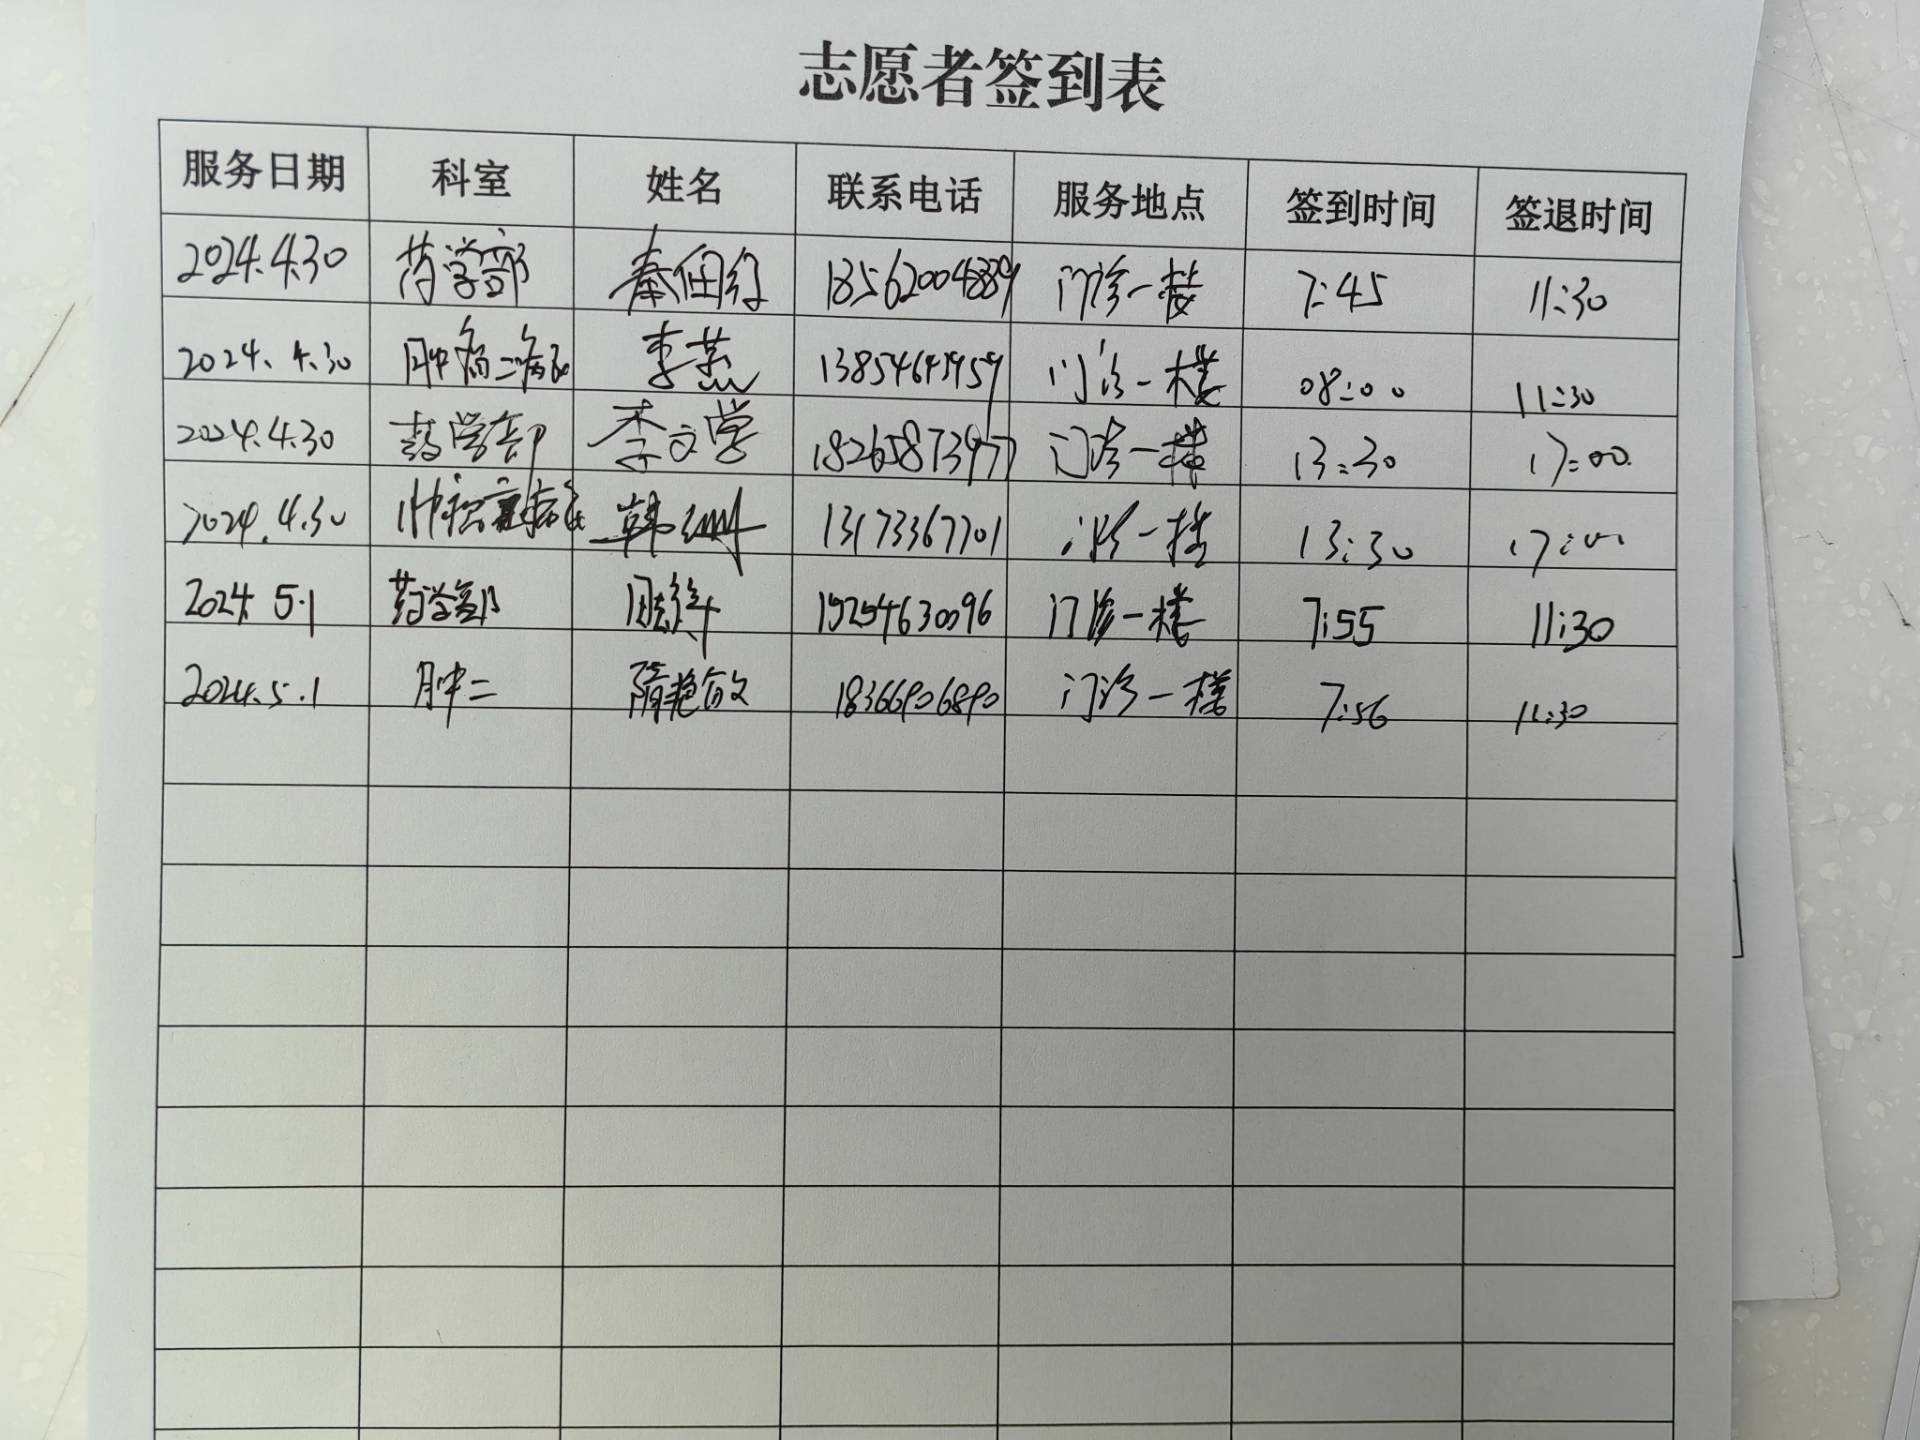 志愿者签到表
服务日期 科室 姓名 联系电话 服务地点 签到时间 签退时间
2024.4.30 药学部 秦 门诊一楼 7:45 11:30
2024.4.30 肿瘤二病区 李燕 门诊一楼 08:00 11:30
2024.4.30 药学部 李文学 门诊一楼 13:30 17:00
2024.4.30 韩 13173367701 门诊一楼 13:30 17:00
2024.5.1 药学部 门诊一楼 7:55 11:30
2024.5.1 肿二 隋艳敏 18366906890 门诊一楼 7:56 11:30